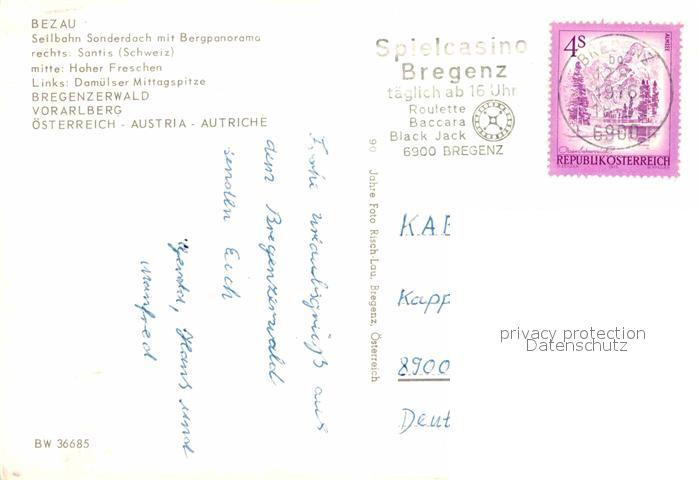 BEZAU
Seilbahn Sonderdach mit Bergpanorama
rechts: Säntis (Schweiz)
mitte: Hoher Freschen
Links: Damülser Mittagspitze
BREGENZERWALD
VORARLBERG
ÖSTERREICH - AUSTRIA - AUTRICHE
Spielcasino
Bregenz
täglich ab 16 Uhr
Roulette
Baccara
Black Jack
6900 BREGENZ
4S
ALMSEE
REPUBLIK ÖSTERREICH
BREGENZ
1976
6900
Frohe Urlaubsgrüße aus
dem Bregenzerwald
senden Euch
Gerda, Hans und
Manfred
90 Jahre Foto Risch-Lau, Bregenz, Österreich
KAB
Kapp
8900
Deut
privacy protection
Datenschutz
BW 36685